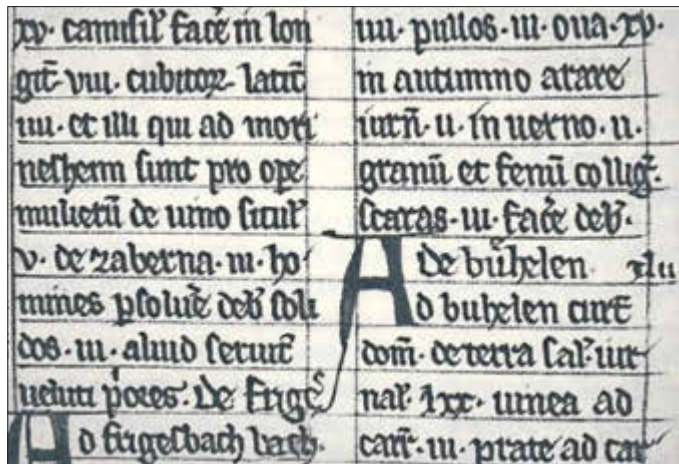 xv. camisil facē in lon
git viii. cubitoꝝ latit
iiii. et illi qui ad mori
neſhem ſunt pro ope
mulietū de uino ſitul
v. de zaberna. iii. ho
mines pſoluē deb ſoli
dos. iii. aliud ſeruit
ueluti pores. De frigeſ
Ad frigeſbach bach.
iiii. pullos. iii. oua. xv.
in autumno arare
iurn. ii. in uerno. ii.
granū et fenū collig.
ſcaras. iii. facē deb.
De buhelen xlii
Ad buhelen curt
dom. de terra ſal. iur
nal. lxx. uinea ad
carr. iii. prate ad car